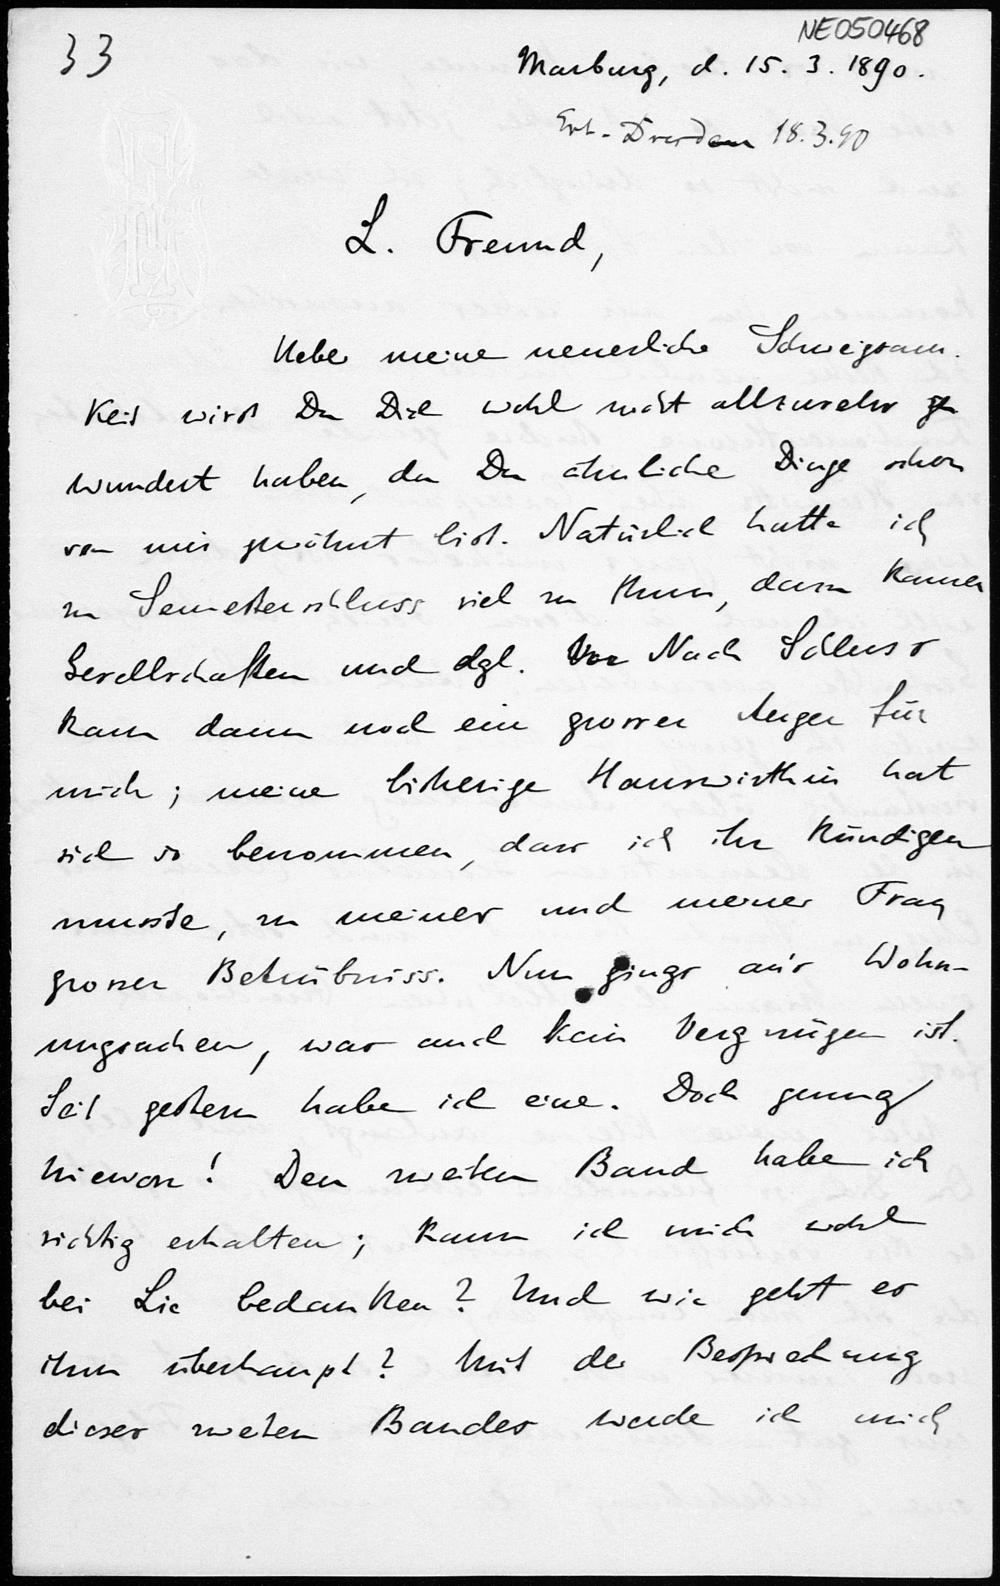 NE050468
33
Marburg, d. 15. 3. 1890.
Erh. Dresden 18.3.90
L. Freund,
Ueber meine neuerliche Schweigsam-
keit wirst Du Dich wohl nicht allzusehr ge
wundert haben, da Du ähnliche Dinge schon
von mir gewöhnt bist. Natürlich hatte ich
zu Semesterschluss viel zu thun, dazu kamen
Gesellschaften und dgl. Vor Nach Schluss
kam dann noch ein grosser Aerger für
mich; meine bisherige Hauswirthin hat
sich so benommen, dass ich ihr kündigen
musste, zu meiner und meiner Frau
grosser Betrübniss. Nun gings ans Wohn-
ungsuchen, was auch kein Vergnügen ist.
Seit gestern habe ich eine. Doch genug
hievon! Den zweiten Band habe ich
richtig erhalten; kann ich mich wohl
bei Lie bedanken? Und wie geht es
ihm überhaupt? Mit der Besprechung
dieses zweiten Bandes werde ich mich